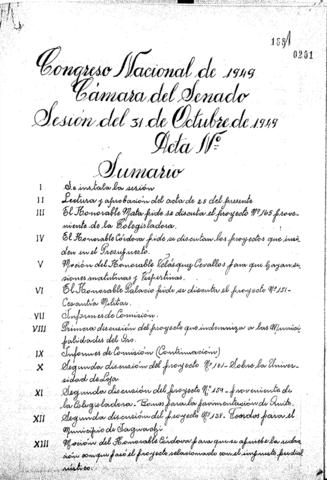 1581
0201
Congreso Nacional de 1949
Cámara del Senado
Sesión del 31 de Octubre de 1949
Acta Nº
Sumario
I Se instala la sesión
II Lectura y aprobación del acta de 25 del presente
III El Honorable Mata pide se discuta el proyecto Nº 165 prove-
niente de la Colegisladora.
IV El Honorable Córdova pide se discutan los proyectos que inci-
den en el Presupuesto.
V Moción del Honorable Velásquez Cevallos para que hayan se-
siones matutinas y Vespertinas.
VI El Honorable Palacio pide se discuta el proyecto Nº 151-
Cesantía Militar.
VII Informes de Comisión.
VIII Primera discusión del proyecto que indemniza a las Munici-
palidades del Oro.
IX Informes de Comisión (Continuación)
X Segunda discusión del proyecto Nº 161- Sobre la Univer-
sidad de Loja.
XI Segunda discusión del proyecto Nº 159- proveniente de
la Colegisladora- Bonos para la pavimentación de Quito.
XII Segunda discusión del proyecto Nº 158- Fondos para el
Municipio de Yaguachi.
XIII Moción del Honorable Córdova para que se apruebe la redac-
ción con que pasó el proyecto relacionado con el impuesto predial
rústico.